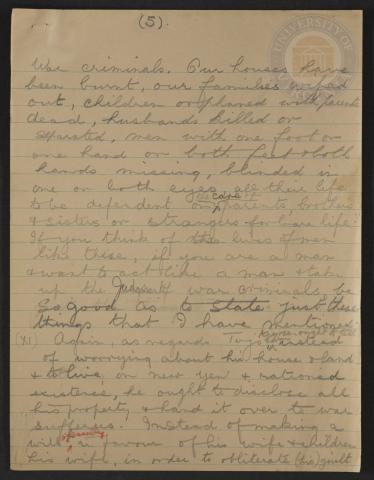 (5).
War criminals. Our houses have
been burnt, our families wiped
out, children orphaned with parents
dead, husbands killed or
separated, men with one foot or
one hand or both feet & both
hands missing, blinded in
one or both eyes, all their life
to be dependent on the care of parents brothers
& sisters or strangers for bare life.
If you think of the lives of men
like these, if you are a man
& want to act like a man & take
up the Judgment of war criminals, be
so good as to state just these
things that I have mentioned.
(XI) Again, as regards Tojo instead
of worrying about his house & land
& to live on new yen & rationed
existence, he ought to disclose all
his property & hand it over to war
sufferers. Instead of making a
will in favour of his wife & children
his wife, in order to obliterate (his) guilt
UNIVERSITY OF